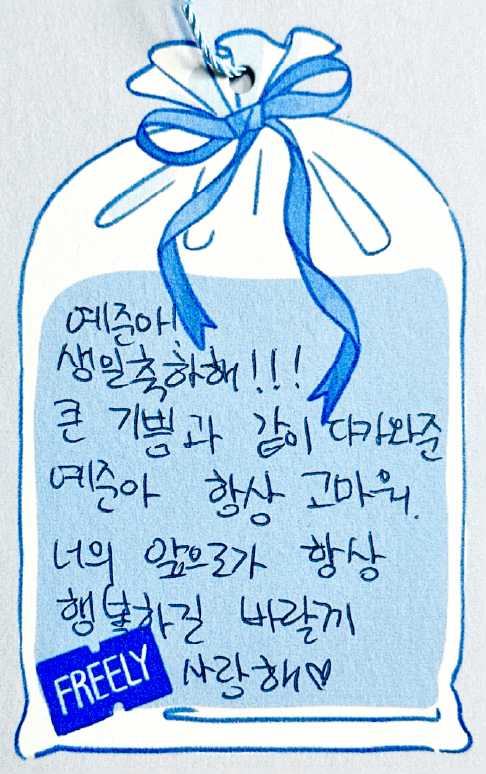 예준아!
생일축하해!!!
큰 기쁨과 같이 다가와준
예준아 항상 고마워.
너의 앞으로가 항상
행복하길 바랄끼
사랑해♡
FREELY